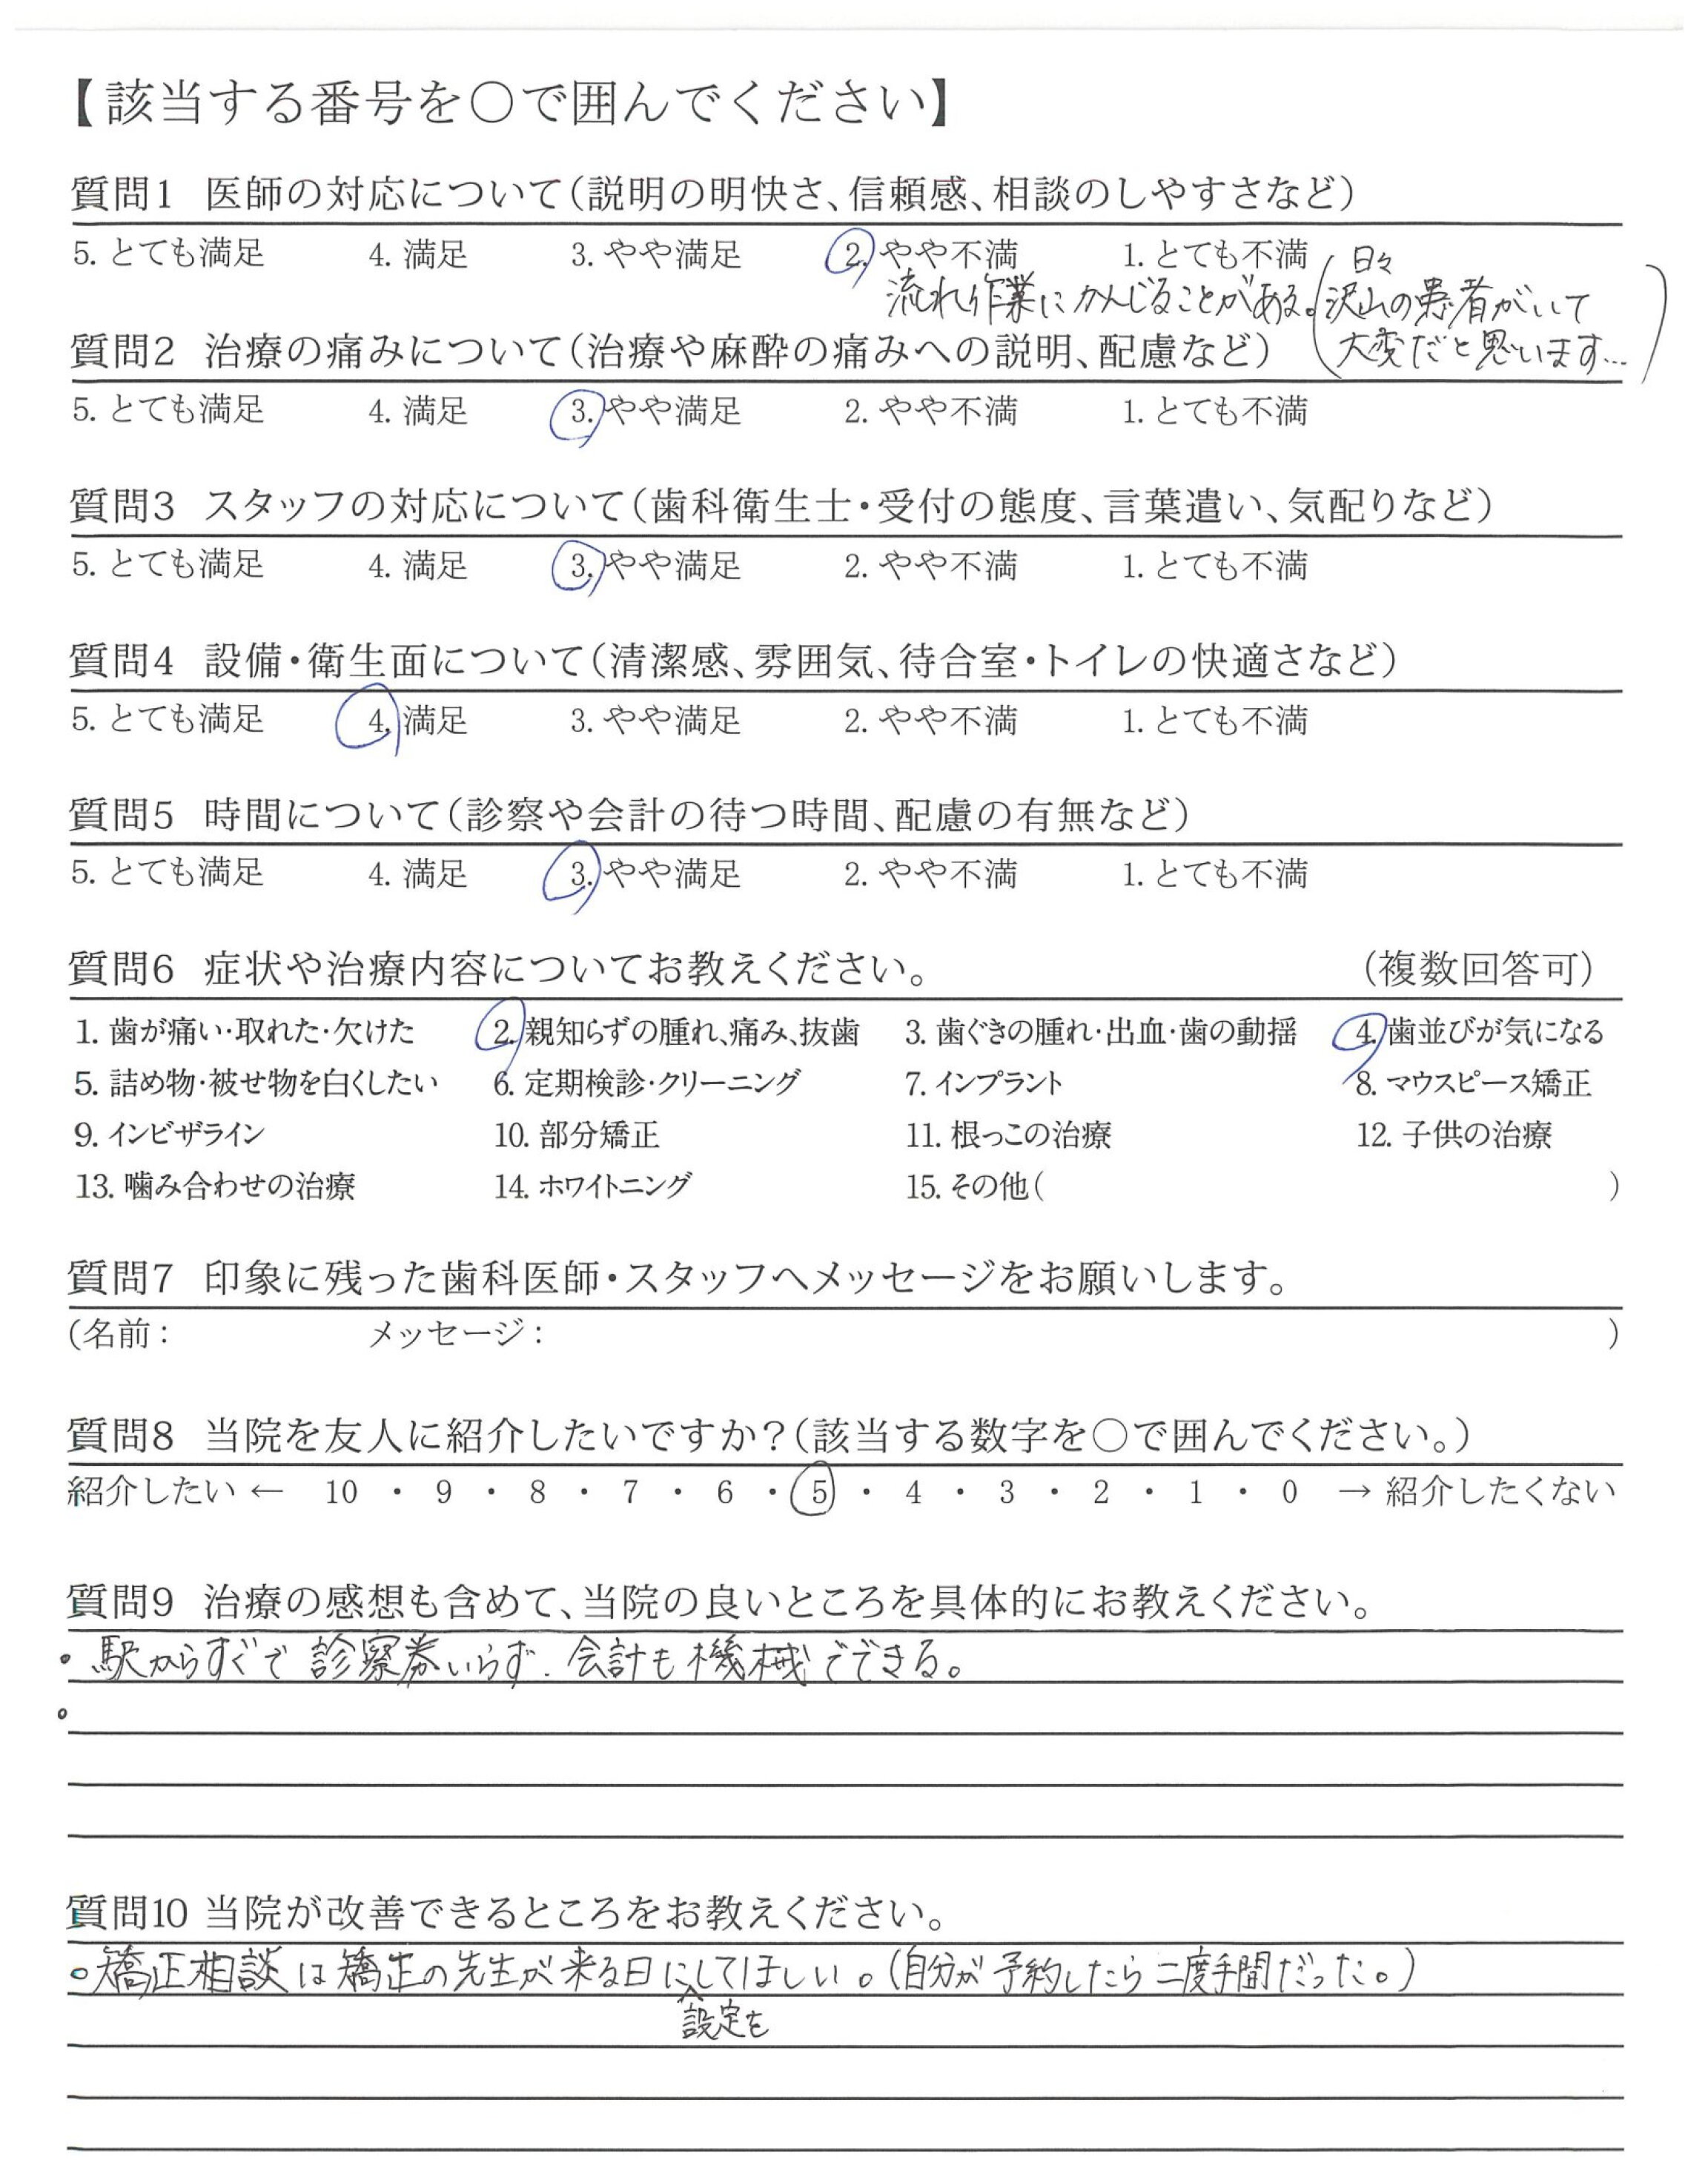 【該当する番号を〇で囲んでください】
質問1 医師の対応について（説明の明快さ、信頼感、相談のしやすさなど）
5. とても満足 4. 満足 3. やや満足 2. やや不満 1. とても不満
流れ作業にかんじることがある。（日々
沢山の患者がいて
大変だと思います…）
質問2 治療の痛みについて（治療や麻酔の痛みへの説明、配慮など）
5. とても満足 4. 満足 3. やや満足 2. やや不満 1. とても不満
質問3 スタッフの対応について（歯科衛生士・受付の態度、言葉遣い、気配りなど）
5. とても満足 4. 満足 3. やや満足 2. やや不満 1. とても不満
質問4 設備・衛生面について（清潔感、雰囲気、待合室・トイレの快適さなど）
5. とても満足 4. 満足 3. やや満足 2. やや不満 1. とても不満
質問5 時間について（診察や会計の待つ時間、配慮の有無など）
5. とても満足 4. 満足 3. やや満足 2. やや不満 1. とても不満
質問6 症状や治療内容についてお教えください。 （複数回答可）
1. 歯が痛い・取れた・欠けた 2. 親知らずの腫れ、痛み、抜歯 3. 歯ぐきの腫れ・出血・歯の動揺 4. 歯並びが気になる
5. 詰め物・被せ物を白くしたい 6. 定期検診・クリーニング 7. インプラント 8. マウスピース矯正
9. インビザライン 10. 部分矯正 11. 根っこの治療 12. 子供の治療
13. 噛み合わせの治療 14. ホワイトニング 15. その他（ ）
質問7 印象に残った歯科医師・スタッフへメッセージをお願いします。
（名前： メッセージ： ）
質問8 当院を友人に紹介したいですか？（該当する数字を〇で囲んでください。）
紹介したい ← 10 ・ 9 ・ 8 ・ 7 ・ 6 ・ 5 ・ 4 ・ 3 ・ 2 ・ 1 ・ 0 → 紹介したくない
質問9 治療の感想も含めて、当院の良いところを具体的にお教えください。
。駅からすぐで診察券いらず．会計も機械でできる。
。
質問10 当院が改善できるところをお教えください。
。矯正相談は矯正の先生が来る日にしてほしい。（自分が予約したら二度手間だった。）
設定を